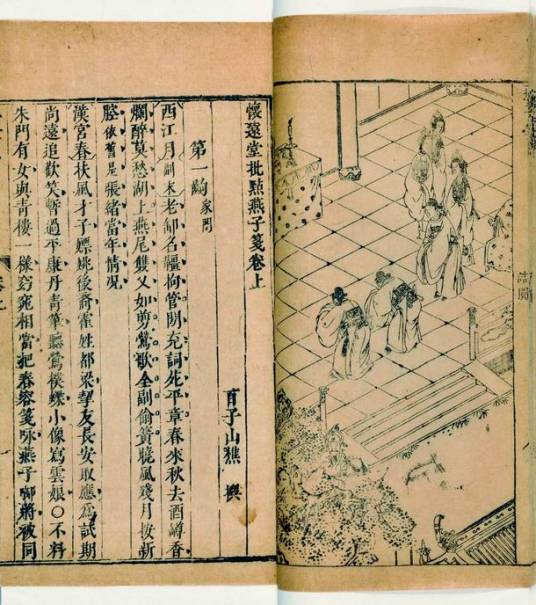 懷遠堂批點燕子箋卷上
百子山樵 撰
第一齣 家門
西江月 副末 老卸名韁拘管閒充詞苑平章春來秋去酒罇香
爛醉莫愁湖上燕尾雙叉如剪鶯歌全副偷簧曉風殘月按新
腔依舊是張緒當年情況
漢宮春扶風才子嫖姚後裔霍姓都梁挈友長安取應爲試期
尚遠追歡笑暫過平康丹青筆聽鶯撲蝶小像寫雲娘○不料
朱門有女與青樓一樣窈窕相當把春容箋咏燕子啣將被同